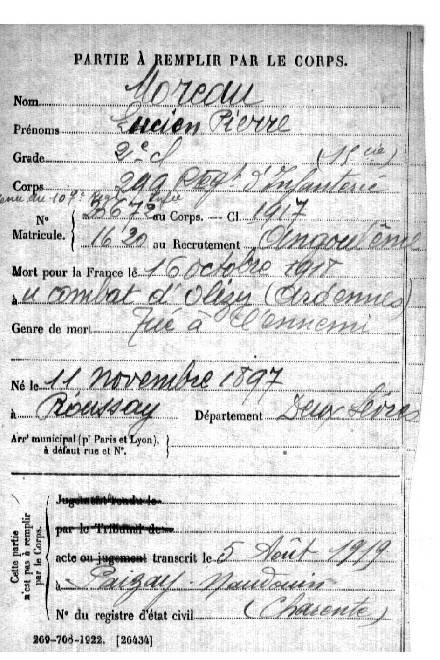 PARTIE À REMPLIR PAR LE CORPS.
Nom Moreau
Prénoms Lucien Pierre
Grade 2e cl (11e cie)
Corps 299 Regt d'Infanterie
venu du 107e Regt Infie
N° Matricule. { au Corps. — Cl. 1917
1620 au Recrutement Angoulême
Mort pour la France le 16 octobre 1918
au combat d'Olizy (Ardennes)
Genre de mort Tué à l'ennemi
Né le 11 novembre 1897
à Roussay Département Deux Sèvres
Arrt municipal (pr Paris et Lyon), à défaut rue et N°. }
Cette partie n'est pas à remplir par le Corps. {
Jugement rendu le
par le Tribunal de
acte ou jugement transcrit le 5 Août 1919
à Paizay-Naudouin
(Charente)
N° du registre d'état civil
269-708-1922. [26434]